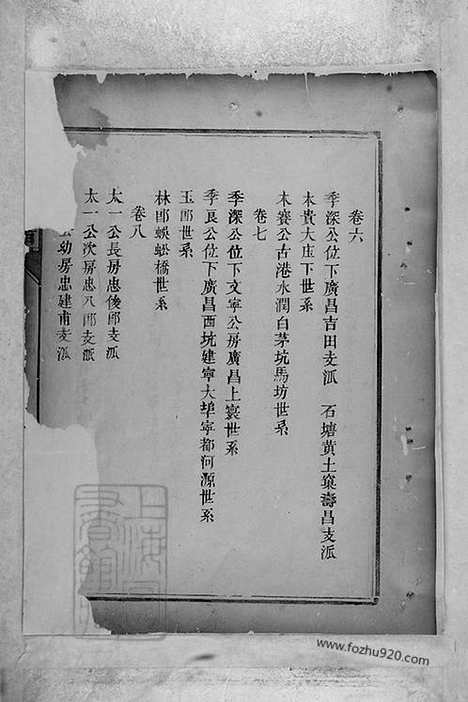 卷六
季深公位下廣昌吉田支派　石塘黃土寨壽昌支派
未貴大庄下世系
未賽公古港水潤白茅坑馬坊世系
卷七
季深公位下文寧公房廣昌上寰世系
季良公位下廣昌西坑建寧大埠寧都河源世系
玉郎世系
林郎蜈蚣橋世系
卷八
太一公長房忠俊郎支派
太一公次房忠八郎支派
幼房忠建甫支派
www.fozhu920.com